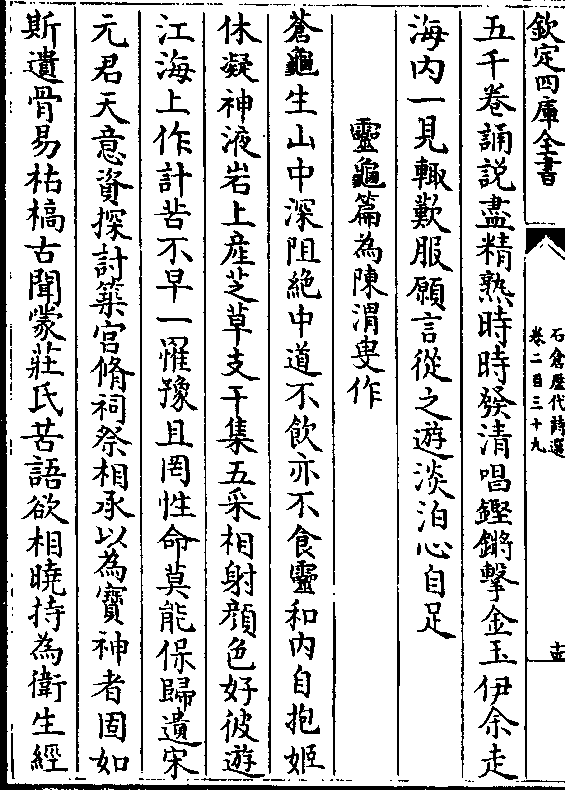 欽定四庫全書
石倉歷代詩選
卷二百三十九
五千卷誦説盡精熟時時發清唱鏗鏘擊金玉伊余走
海内一見輙歎服願言從之遊淡泊心自足
靈龜篇為陳渭叟作
蒼龜生山中深阻絶中道不飲亦不食靈和内自抱姬
休凝神液岩上産芝草支干集五采相射顔色好彼遊
江海上作計苦不早一罹豫且罔性命莫能保歸遺宋
元君天意資探討築宫脩祠祭相承以為寶神者固如
斯遺骨易枯槁古聞蒙莊氏苦語欲相曉持為衛生經